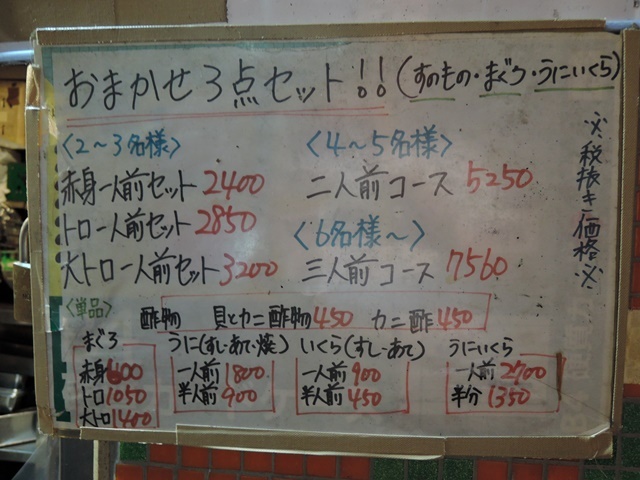 おまかせ3点セット!!(すのもの・まぐろ・うにいくら)
※税抜き価格※
〈2～3名様〉
赤身一人前セット2400
トロ一人前セット2850
大トロ一人前セット3200
〈4～5名様〉
二人前コース 5250
〈6名様～〉
三人前コース 7560
〈単品〉
酢物 貝とカニ酢物450 カニ酢450
まぐろ
赤身600
トロ1050
大トロ1400
うに(すし・あて・焼)
一人前1800
半人前900
いくら(すし・あて)
一人前900
半人前450
うにいくら
一人前2700
半分1350